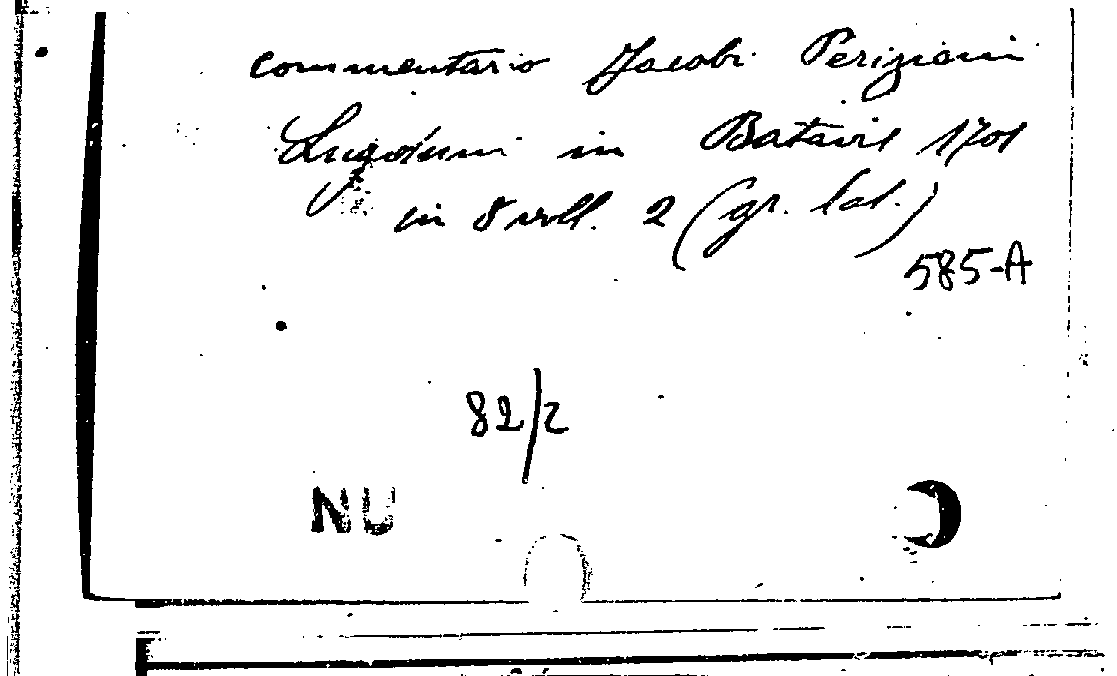 commentario Jacobi Perizoni
Lugduni in Batavis 1701
in 8 voll. 2 (gr. lat.)
585-A
82/2
NU